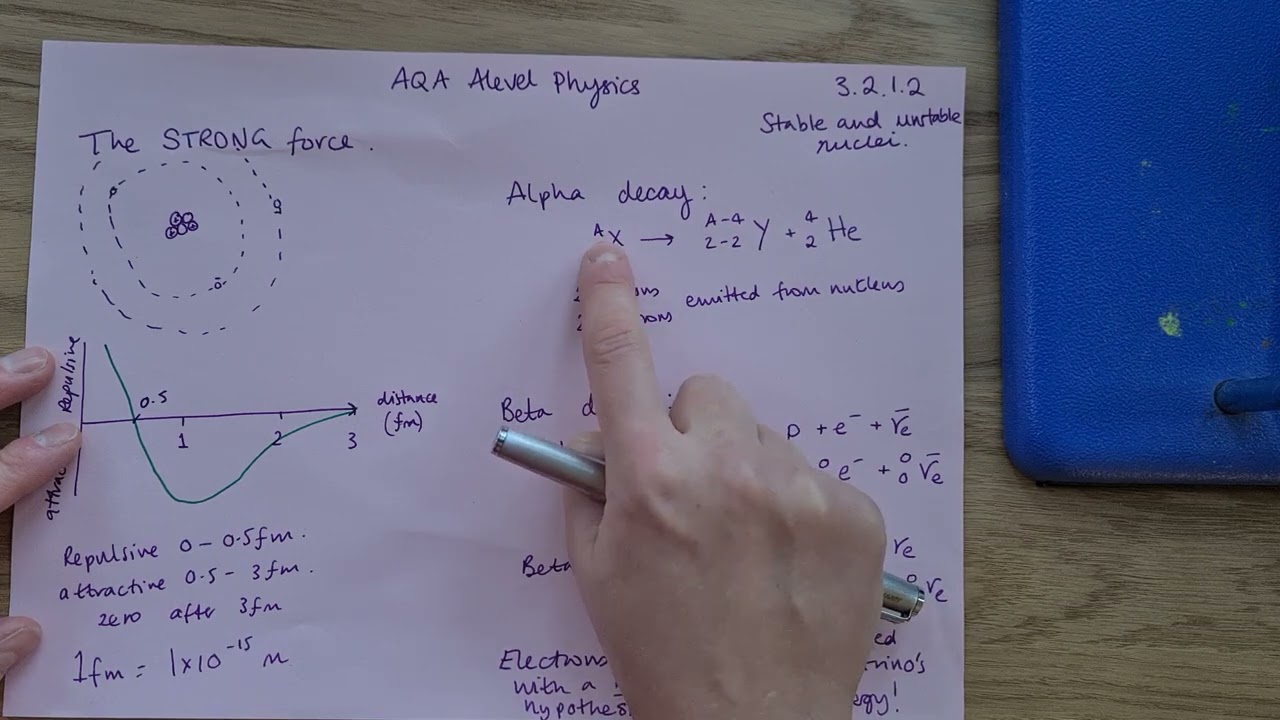 AQA Alevel Physics
3.2.1.2
Stable and unstable
nuclei.
The STRONG force.
Repulsive
0.5
1
2
3
distance
(fm)
Repulsive 0 - 0.5fm.
attractive 0.5 - 3fm.
zero after 3fm
1fm = 1x10⁻¹⁵ m
Alpha decay:
ᴬX → ᴬ⁻⁴₂₋₂Y + ⁴₂He
emitted from nucleus
Beta
p + e⁻ + v̄e
⁰e⁻ + ⁰₀v̄e
ve
Beta
ve
Electrons
with a